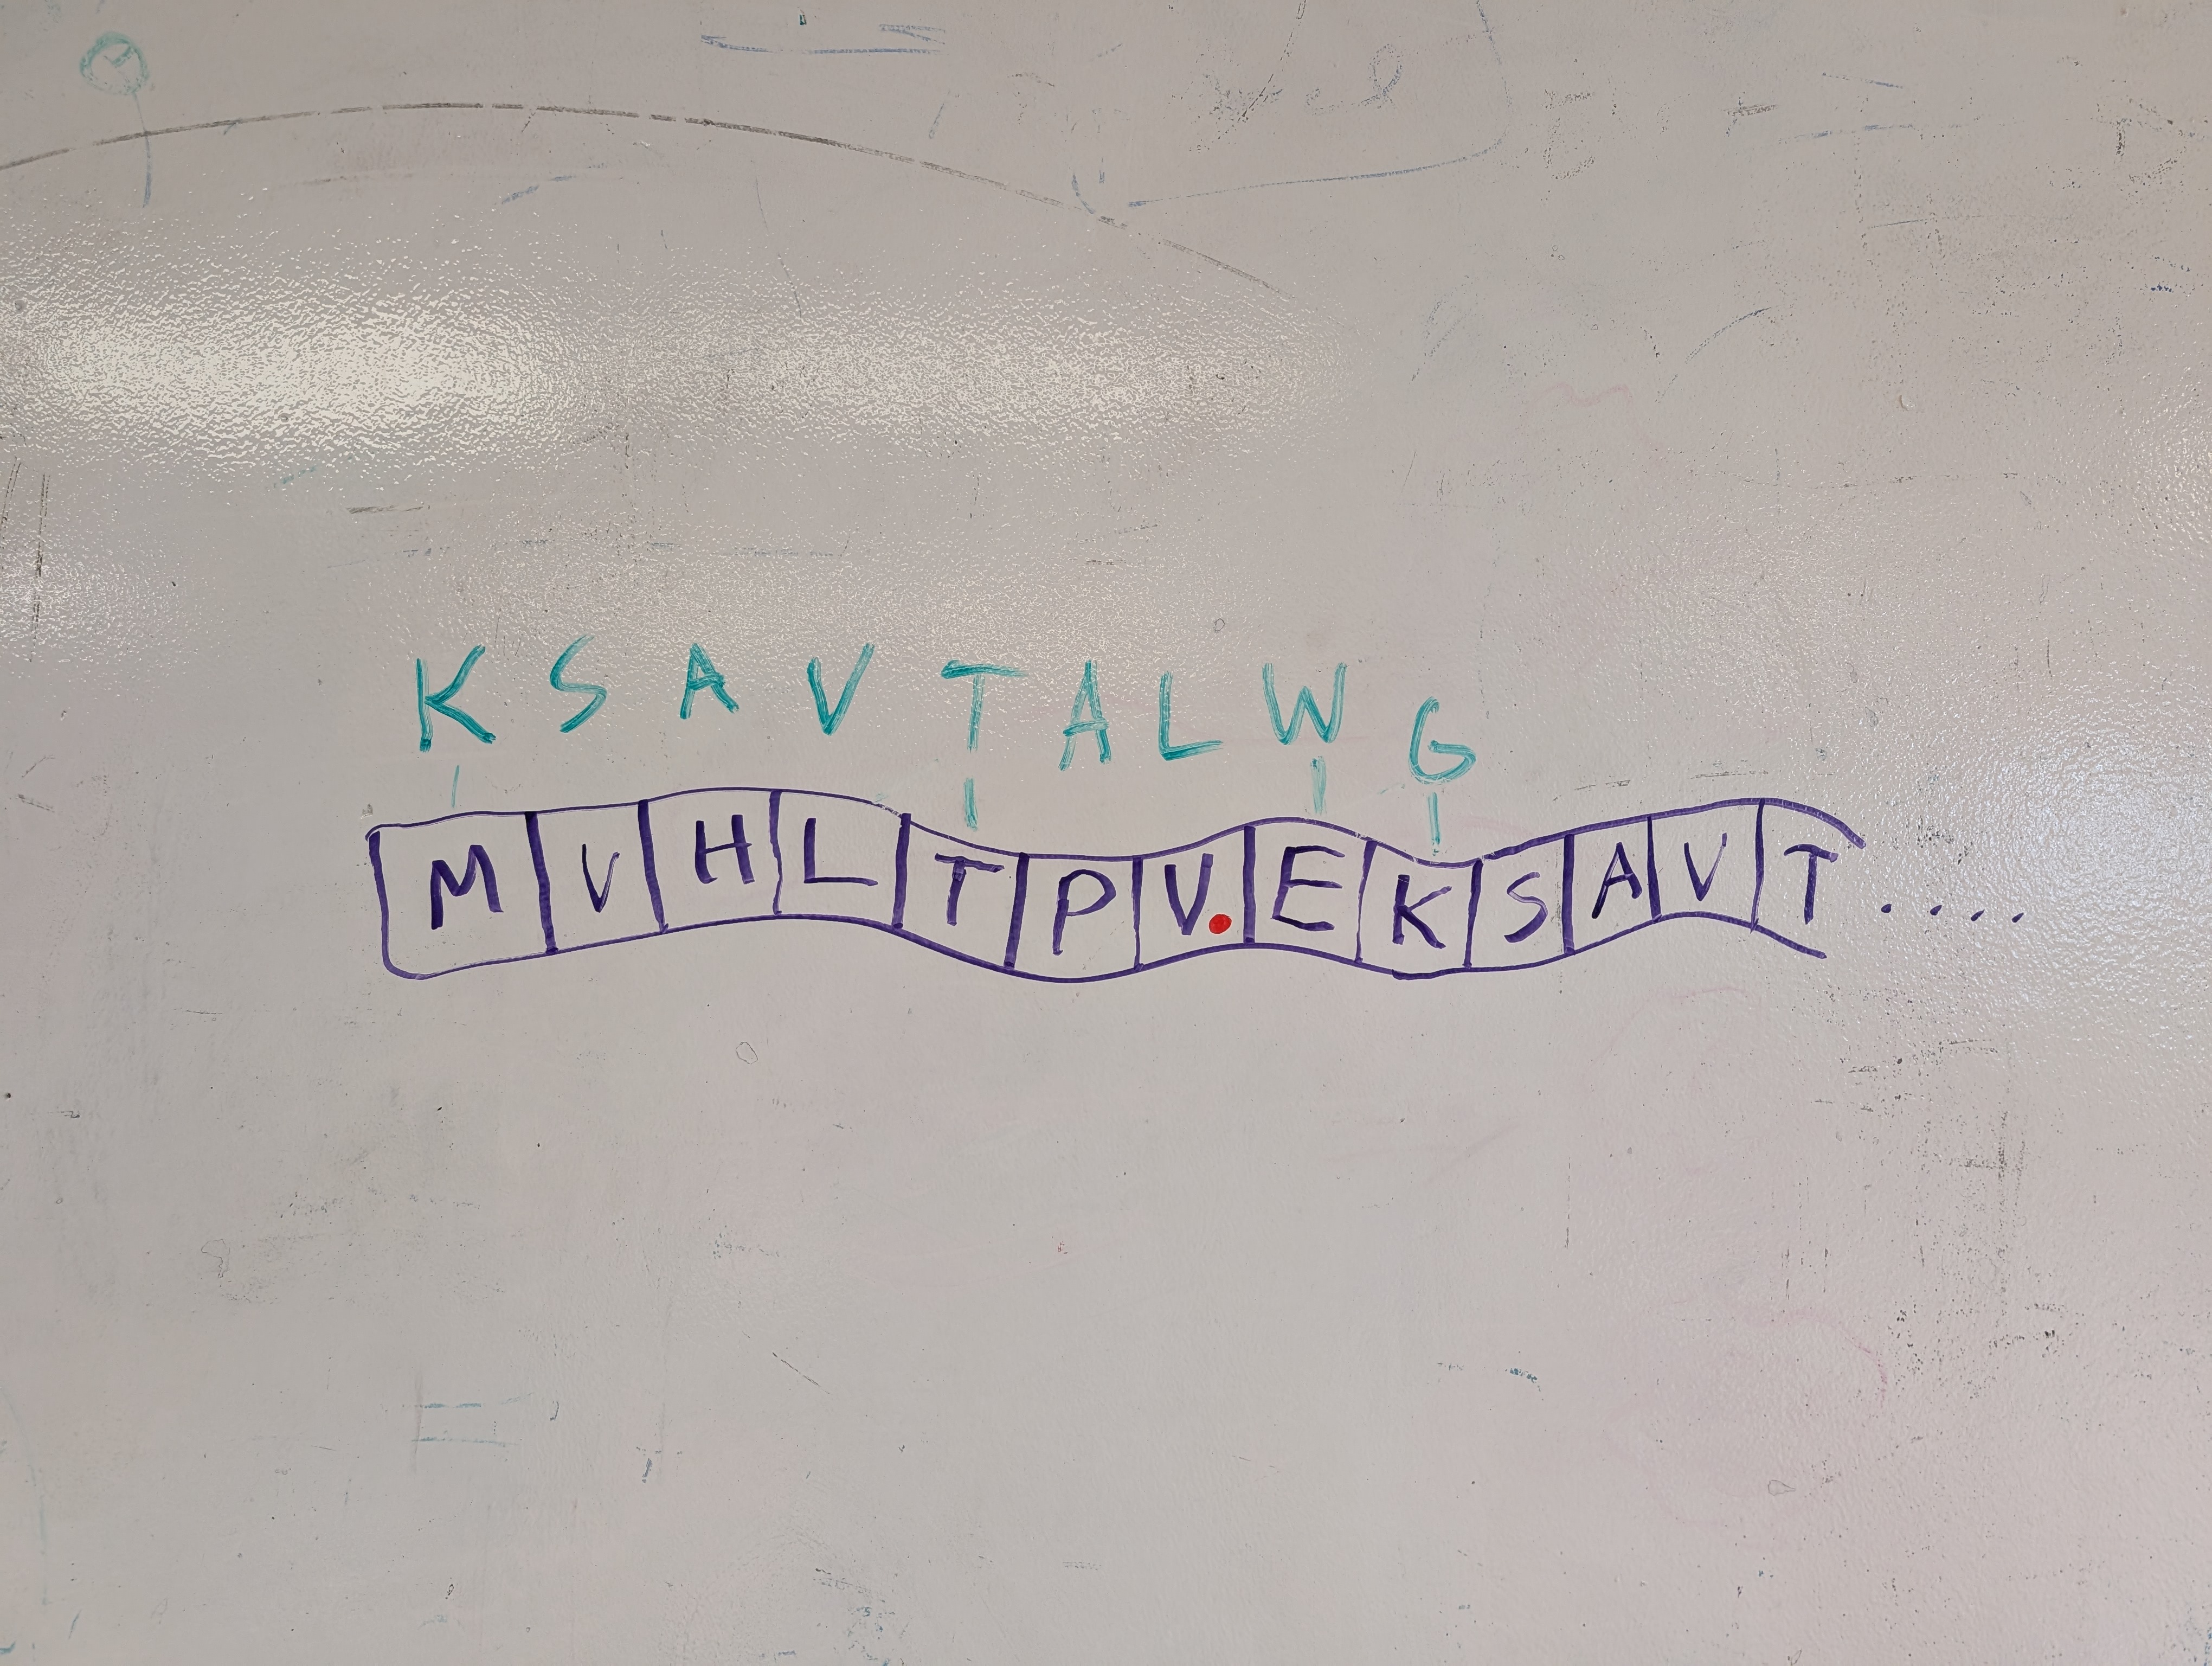 K S A V T A L W G
M V H L T P V. E K S A V T ....